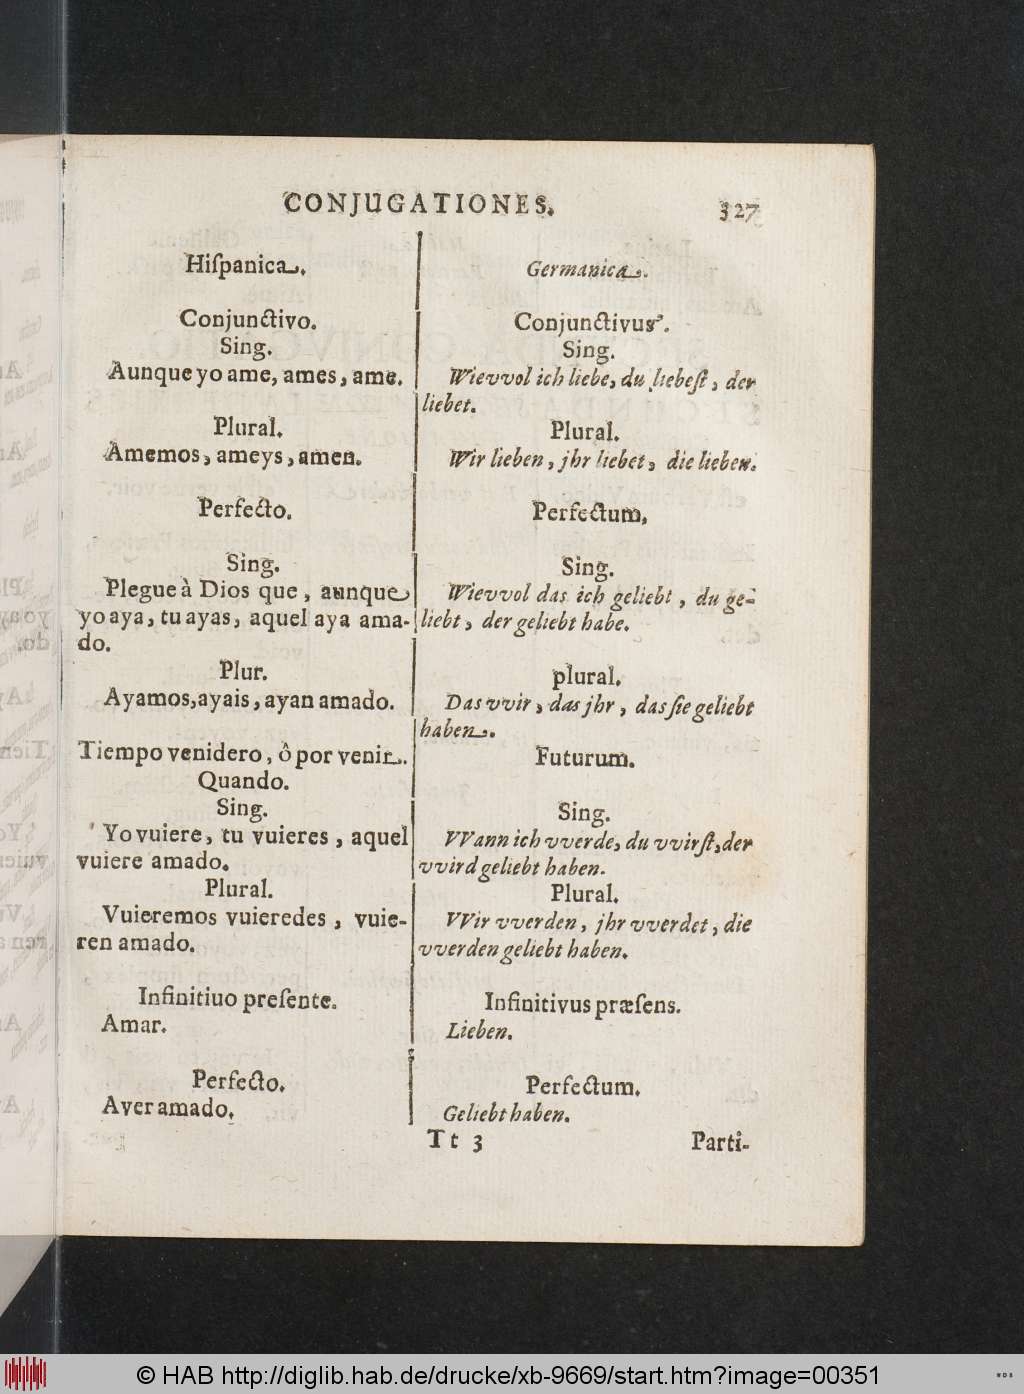 CONJUGATIONES. 327
Hiſpanica.
Conjunctivo.
Sing.
Aunque yo ame, ames, ame.
Plural.
Amemos, ameys, amen.
Perfecto.
Sing.
Plegue à Dios que, aunque
yo aya, tu ayas, aquel aya ama-
do.
Plur.
Ayamos, ayais, ayan amado.
Tiempo venidero, ô por venir.
Quando.
Sing.
Yo vuiere, tu vuieres, aquel
vuiere amado.
Plural.
Vuieremos vuieredes, vuie-
ren amado.
Infinitiuo preſente.
Amar.
Perfecto.
Aver amado.
Germanica.
Conjunctivus.
Sing.
Wievvol ich liebe, du liebeſt, der
liebet.
Plural.
Wir lieben, jhr liebet, die lieben.
Perfectum,
Sing.
Wievvol das ich geliebt, du ge-
liebt, der geliebt habe.
plural.
Das vvir, das jhr, das ſie geliebt
haben.
Futurum.
Sing.
VVann ich vverde, du vvirſt, der
vvird geliebt haben.
Plural.
VVir vverden, jhr vverdet, die
vverden geliebt haben.
Infinitivus præſens.
Lieben.
Perfectum.
Geliebt haben.
Tt 3 Parti-
© HAB http://diglib.hab.de/drucke/xb-9669/start.htm?image=00351